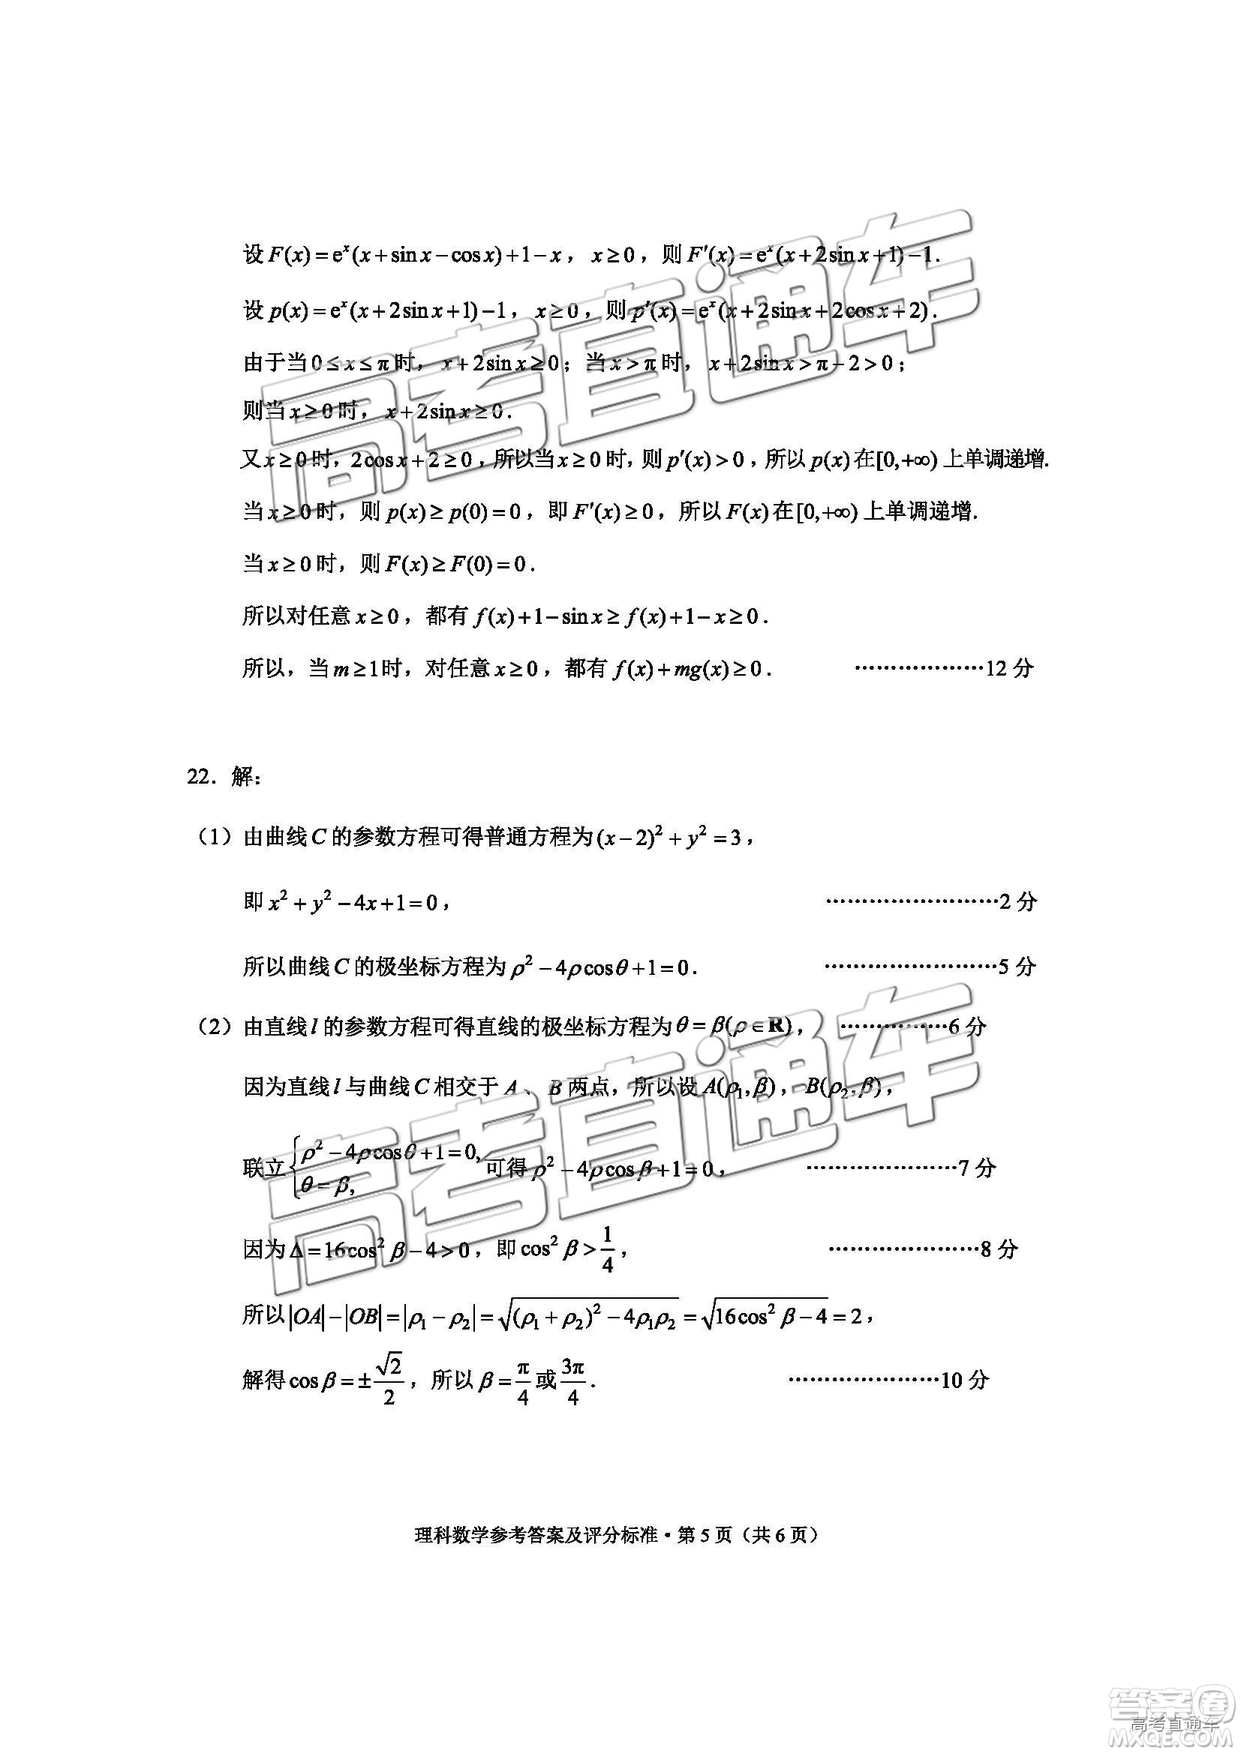 设 F(x)=eˣ(x+sin x−cos x)+1−x，x≥0，则 F′(x)=eˣ(x+2sin x+1)−1.
设 p(x)=eˣ(x+2sin x+1)−1，x≥0，则 p′(x)=eˣ(x+2sin x+2cos x+2).
由于当 0≤x≤π 时，x+2sin x≥0；当 x>π 时，x+2sin x>π−2>0；
则当 x≥0 时，x+2sin x≥0.
又 x≥0 时，2cos x+2≥0，所以当 x≥0 时，则 p′(x)>0，所以 p(x) 在[0,+∞) 上单调递增.
当 x≥0 时，则 p(x)≥p(0)=0，即 F′(x)≥0，所以 F(x) 在[0,+∞) 上单调递增.
当 x≥0 时，则 F(x)≥F(0)=0.
所以对任意 x≥0，都有 f(x)+1−sin x≥f(x)+1−x≥0.
所以，当 m≥1 时，对任意 x≥0，都有 f(x)+mg(x)≥0. ………………12 分
22．解：
（1）由曲线 C 的参数方程可得普通方程为 (x−2)²+y²=3，
即 x²+y²−4x+1=0， ……………………2 分
所以曲线 C 的极坐标方程为 ρ²−4ρcosθ+1=0. ……………………5 分
（2）由直线 l 的参数方程可得直线的极坐标方程为 θ=β(ρ∈R)， ……………6 分
因为直线 l 与曲线 C 相交于 A 、B 两点，所以设 A(ρ₁,β)，B(ρ₂,β)，
联立{ρ²−4ρcosθ+1=0, θ=β, 可得 ρ²−4ρcosβ+1=0， …………………7 分
因为 Δ=16cos²β−4>0，即 cos²β>1/4， …………………8 分
所以 |OA|−|OB|=|ρ₁−ρ₂|=√((ρ₁+ρ₂)²−4ρ₁ρ₂)=√(16cos²β−4)=2，
解得 cosβ=±√2/2，所以 β=π/4 或 3π/4. …………………10 分
理科数学参考答案及评分标准·第 5 页（共 6 页）
高考直通车
高考直通车
答案卷
高考直通车
MXQE.COM